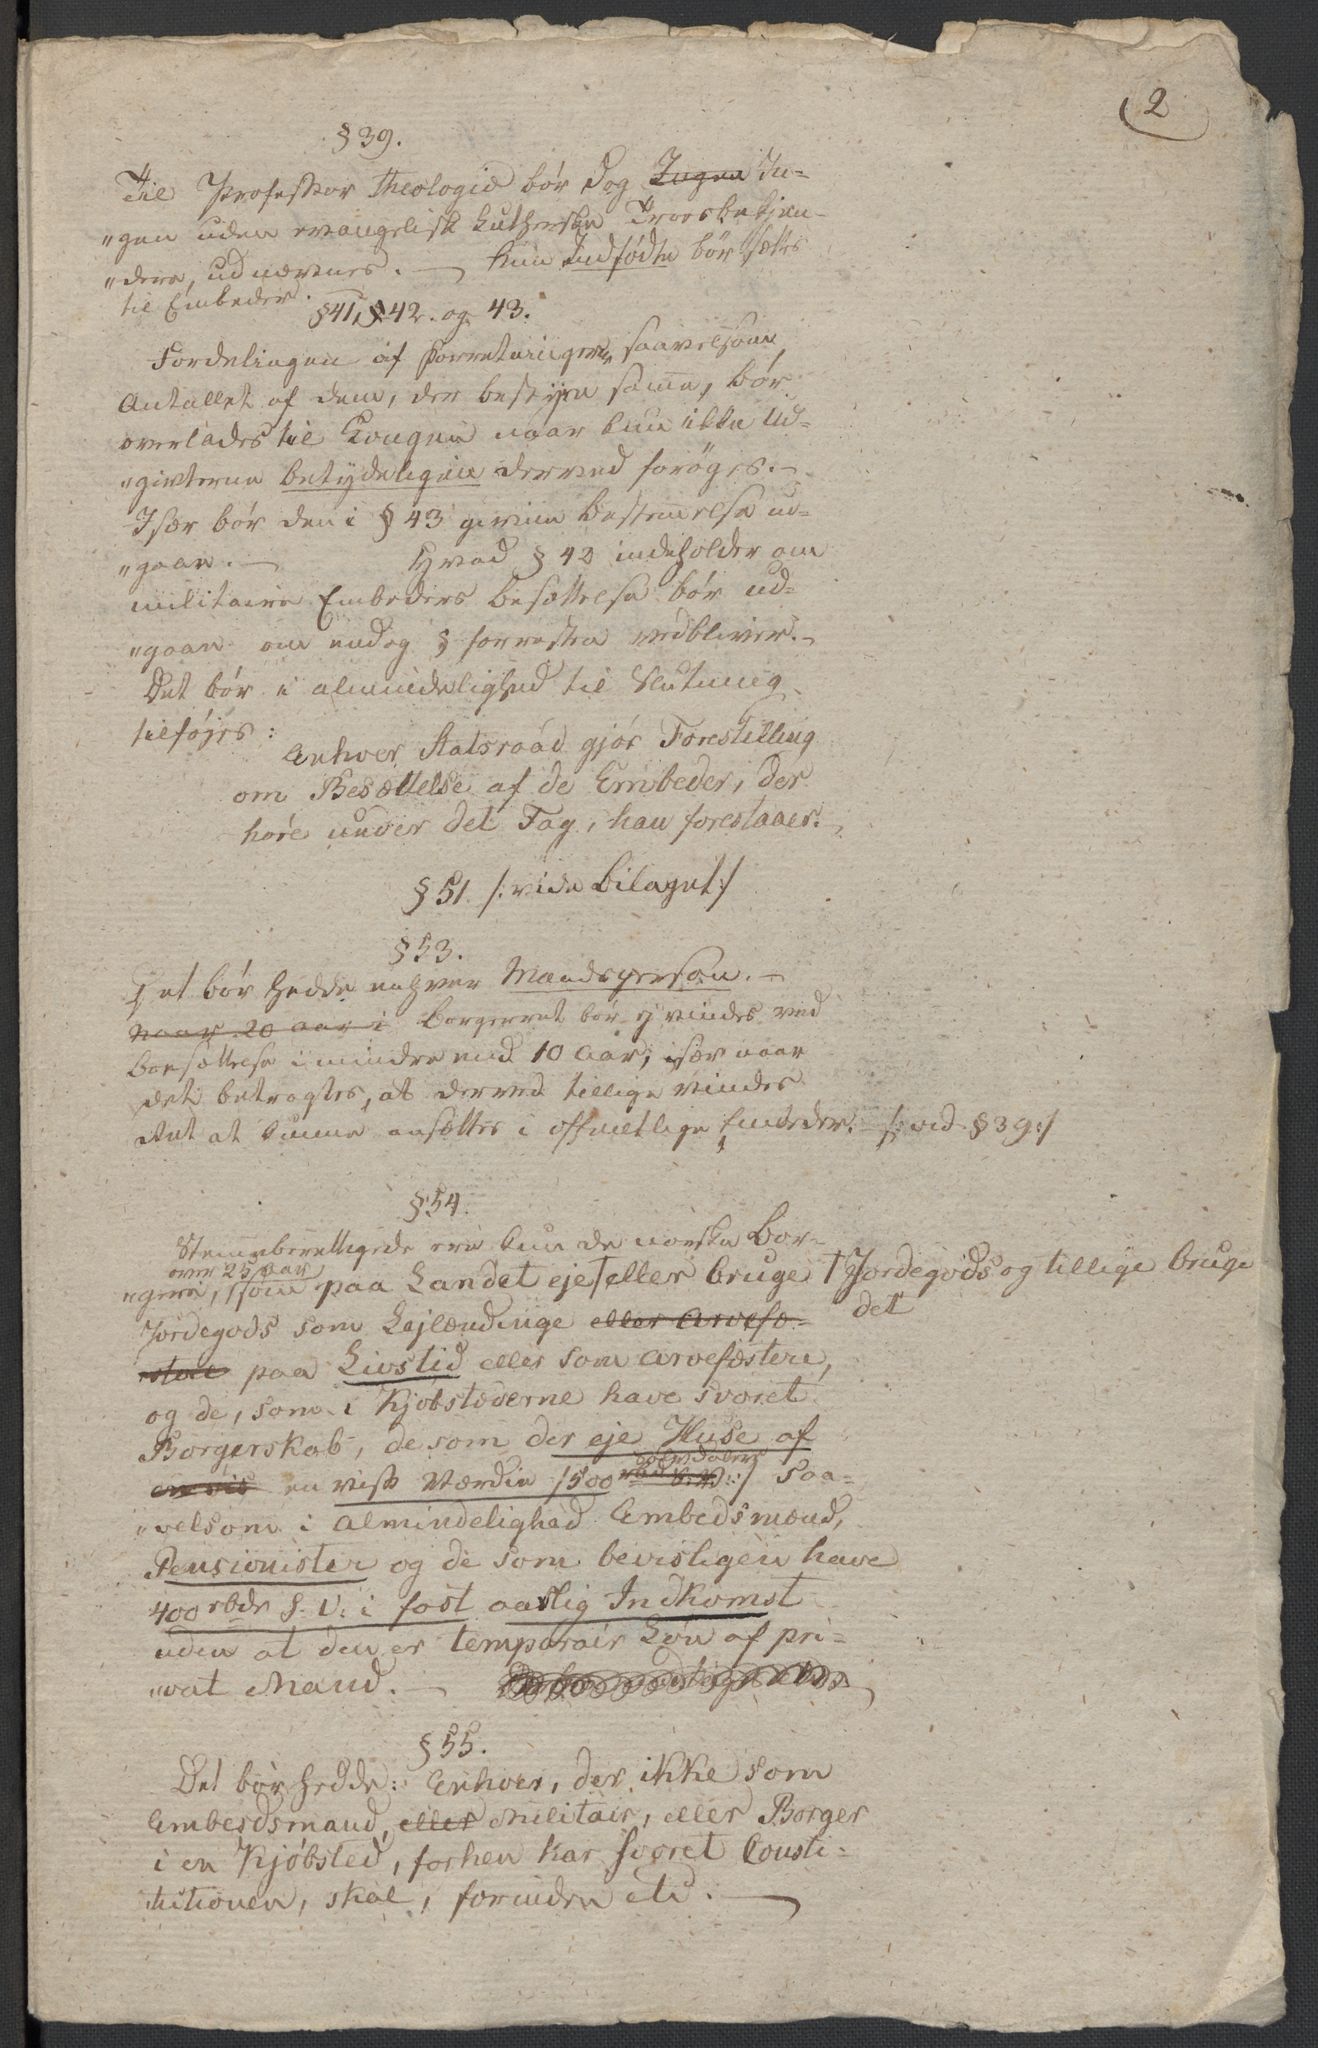 2
§ 39.
Til Professor Theologiæ bør dog Ingen In-
"gen uden evangelisk Lutherske Troesbekjen-
"dere, udnævnes. — Kun Indfødte bør sættes
til Embeder.
§ 41, § 42. og 43.
Fordelingen af Forretninger, saavelsom
Antallet af dem, der bestyre samme, bør
overlades til Kongen naar kun ikke Ud-
"givterne betydeligen derved forøges. —
Især bør den i § 43 givne Bestemelse ud-
"gaae. — Hvad § 42 indeholder om
militaire Embeders Besættelse bør ud-
"gaae om endog § forresten vedbliver. —
Det bør i almindelighed til Slutning
tilføjes:
Enhver Statsraad gjør Forestilling
om Besættelse af de Embeder, der
høre under det Fag, han forestaaer.
§ 51 /: vide Bilaget :/
§ 53.
Det bør hedde enhver Mandsperson. —
naar 20 aar i Borgerret bør ej vindes ved
Bosættelse i mindre end 10 Aar, især naar
det betragtes, at derved tillige vindes
Ret at kunne ansættes i offentlige Embeder. /: vid § 39 :/
§ 54.
Stemmeberettigede ere kun de norske Bor-
over 25 aar
"gere, som paa Landet eje † eller bruge † Jordegods og tillige bruge
det
Jordegods som Lejlændinge eller Arvefæ-
stere paa Livstid eller som Arvefæstere,
og de, som i Kjøbstæderne have svoret
Borgerskab, de som der eje Huse af
en vis en viss Værdie /: 500 rbd S. V. :/ saa-
"velsom i Almindelighed Embedsmænd,
Pensionister og de som bevisligen have
400 rbdr S. V. i fast aarlig Indkomst
uden at den er temporair Løn af pri-
"vat Mand. —
§ 55.
Det bør hedde: Enhver, der ikke som
Embedsmand, eller Militair, eller Borger
i en Kjøbsted, forhen har svoret Consti-
tutionen, skal, forinden etc. —